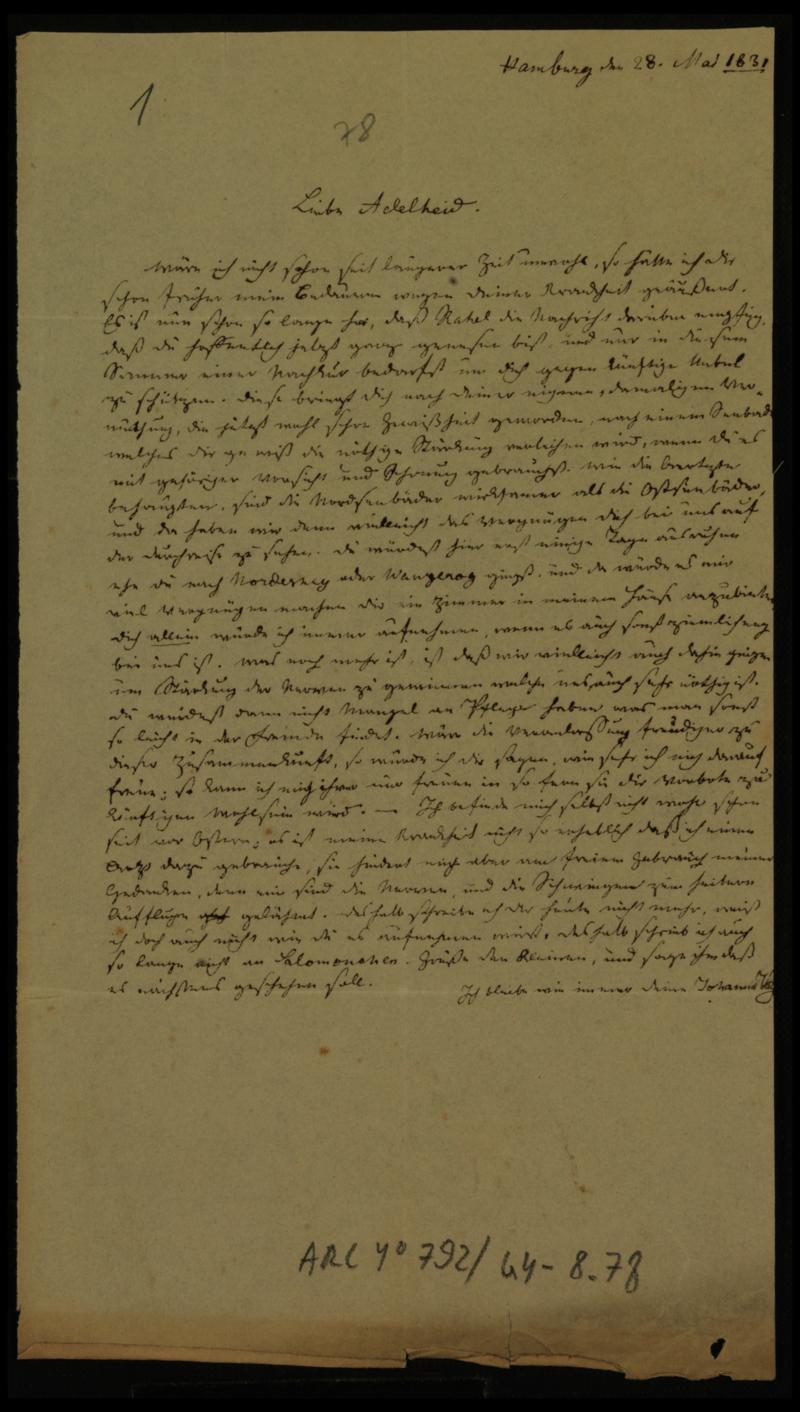 Hamburg den 28. Mai 1831
1
78
Liebe Adelheid.
Wäre ich nicht schon seit längerer Zeit unwohl, so hätte ich dir
schon früher mein Bedauern wegen deiner Krankheit geäußert.
Es ist nun schon so lange her, daß Rahel die Nachricht darüber empfing,
daß du hoffentlich jetzt ganz genesen bist, und nur in diesem
Sommer einer Nachkur bedarfst um dich gegen künftige Uebel
zu schützen. Diese bringt dich nach deiner eigenen, damaligen Ver-
muthung, die jetzt wohl schon Gewißheit geworden, nach einem Seebade
welches dir gewiß die nöthige Stärkung verleihen wird, wenn du es
mit gehöriger Vorsicht und Schonung gebrauchst. Wie die Aerzte
behaupten, sind die Nordseebäder wirksamer als die Ostseebäder,
und da haben wir denn vielleicht das Vergnügen dich bei uns auf
der Durchreise zu sehen. Du würdest hier erst einige Tage ausruhen
ehe du nach Norderney oder Wangerog gingst, und da würde es mir
viel Vergnügen machen dir ein Zimmer in meinem Hause anzubieten
dich allein würde ich immer aufnehmen, wenn es auch sonst ziemlich eng
bei uns ist. Was noch mehr ist, ist daß wir vielleicht auch dahin gingen
um Stärkung der Nerven zu gewinnen welche uns auch sehr nöthig ist.
Du würdest dann nicht Mangel an Pflege haben was man sonst
so leicht in der Fremde findet. Wäre die Veranlassung freudiger zu
dieser Zusammenkunft, so würde ich dir sagen, wie sehr ich mich darauf
freue; so kann ich mich ihrer nur freuen in so fern sie dir Vorbote zu
künftigem Wohlsein wird. — Ich befinde mich selbst nicht wohl schon
seit vor Ostern; es ist meine Krankheit nicht so erheblich daß ich einen
Arzt dazu gebrauche, sie hindert mich aber am freien Gebrauch meiner
Gedanken, denn mir sind die Nerven, und die Schwingen zum heitern
Aufflug gelähmt. Deshalb schreibe ich dir heute nicht mehr, weiß
ich doch auch nicht wie du es aufnehmen wirst, deshalb schrieb ich auch
so lange nicht an Salomonchen. Grüße den Kleinen, und sage ihm daß
es nächstens geschehen soll.
Ich bleibe wie immer deine Johanna
ARC 4° 792/ G4 - 8.78